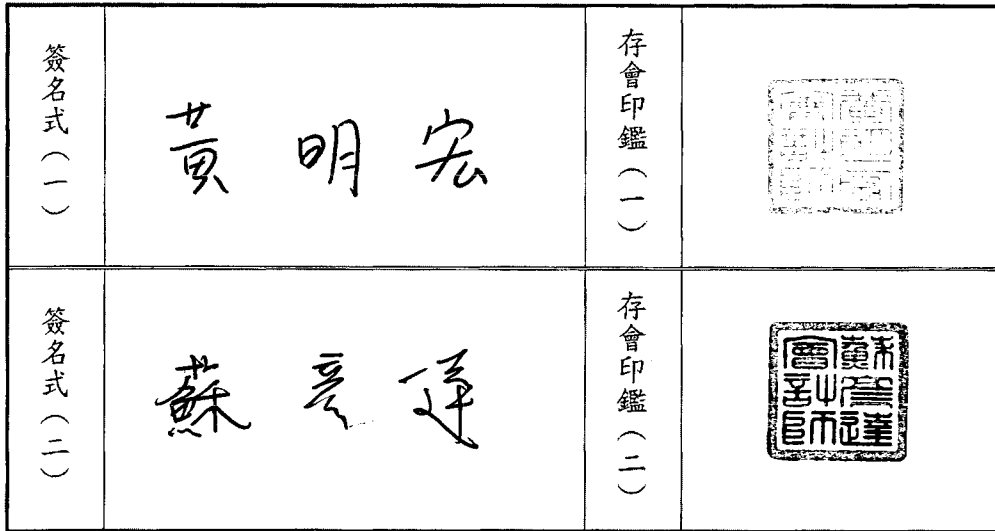 簽名式（一）
黃明宏
存會印鑑（一）
簽名式（二）
蘇彥達
存會印鑑（二）
蘇彥達會計師